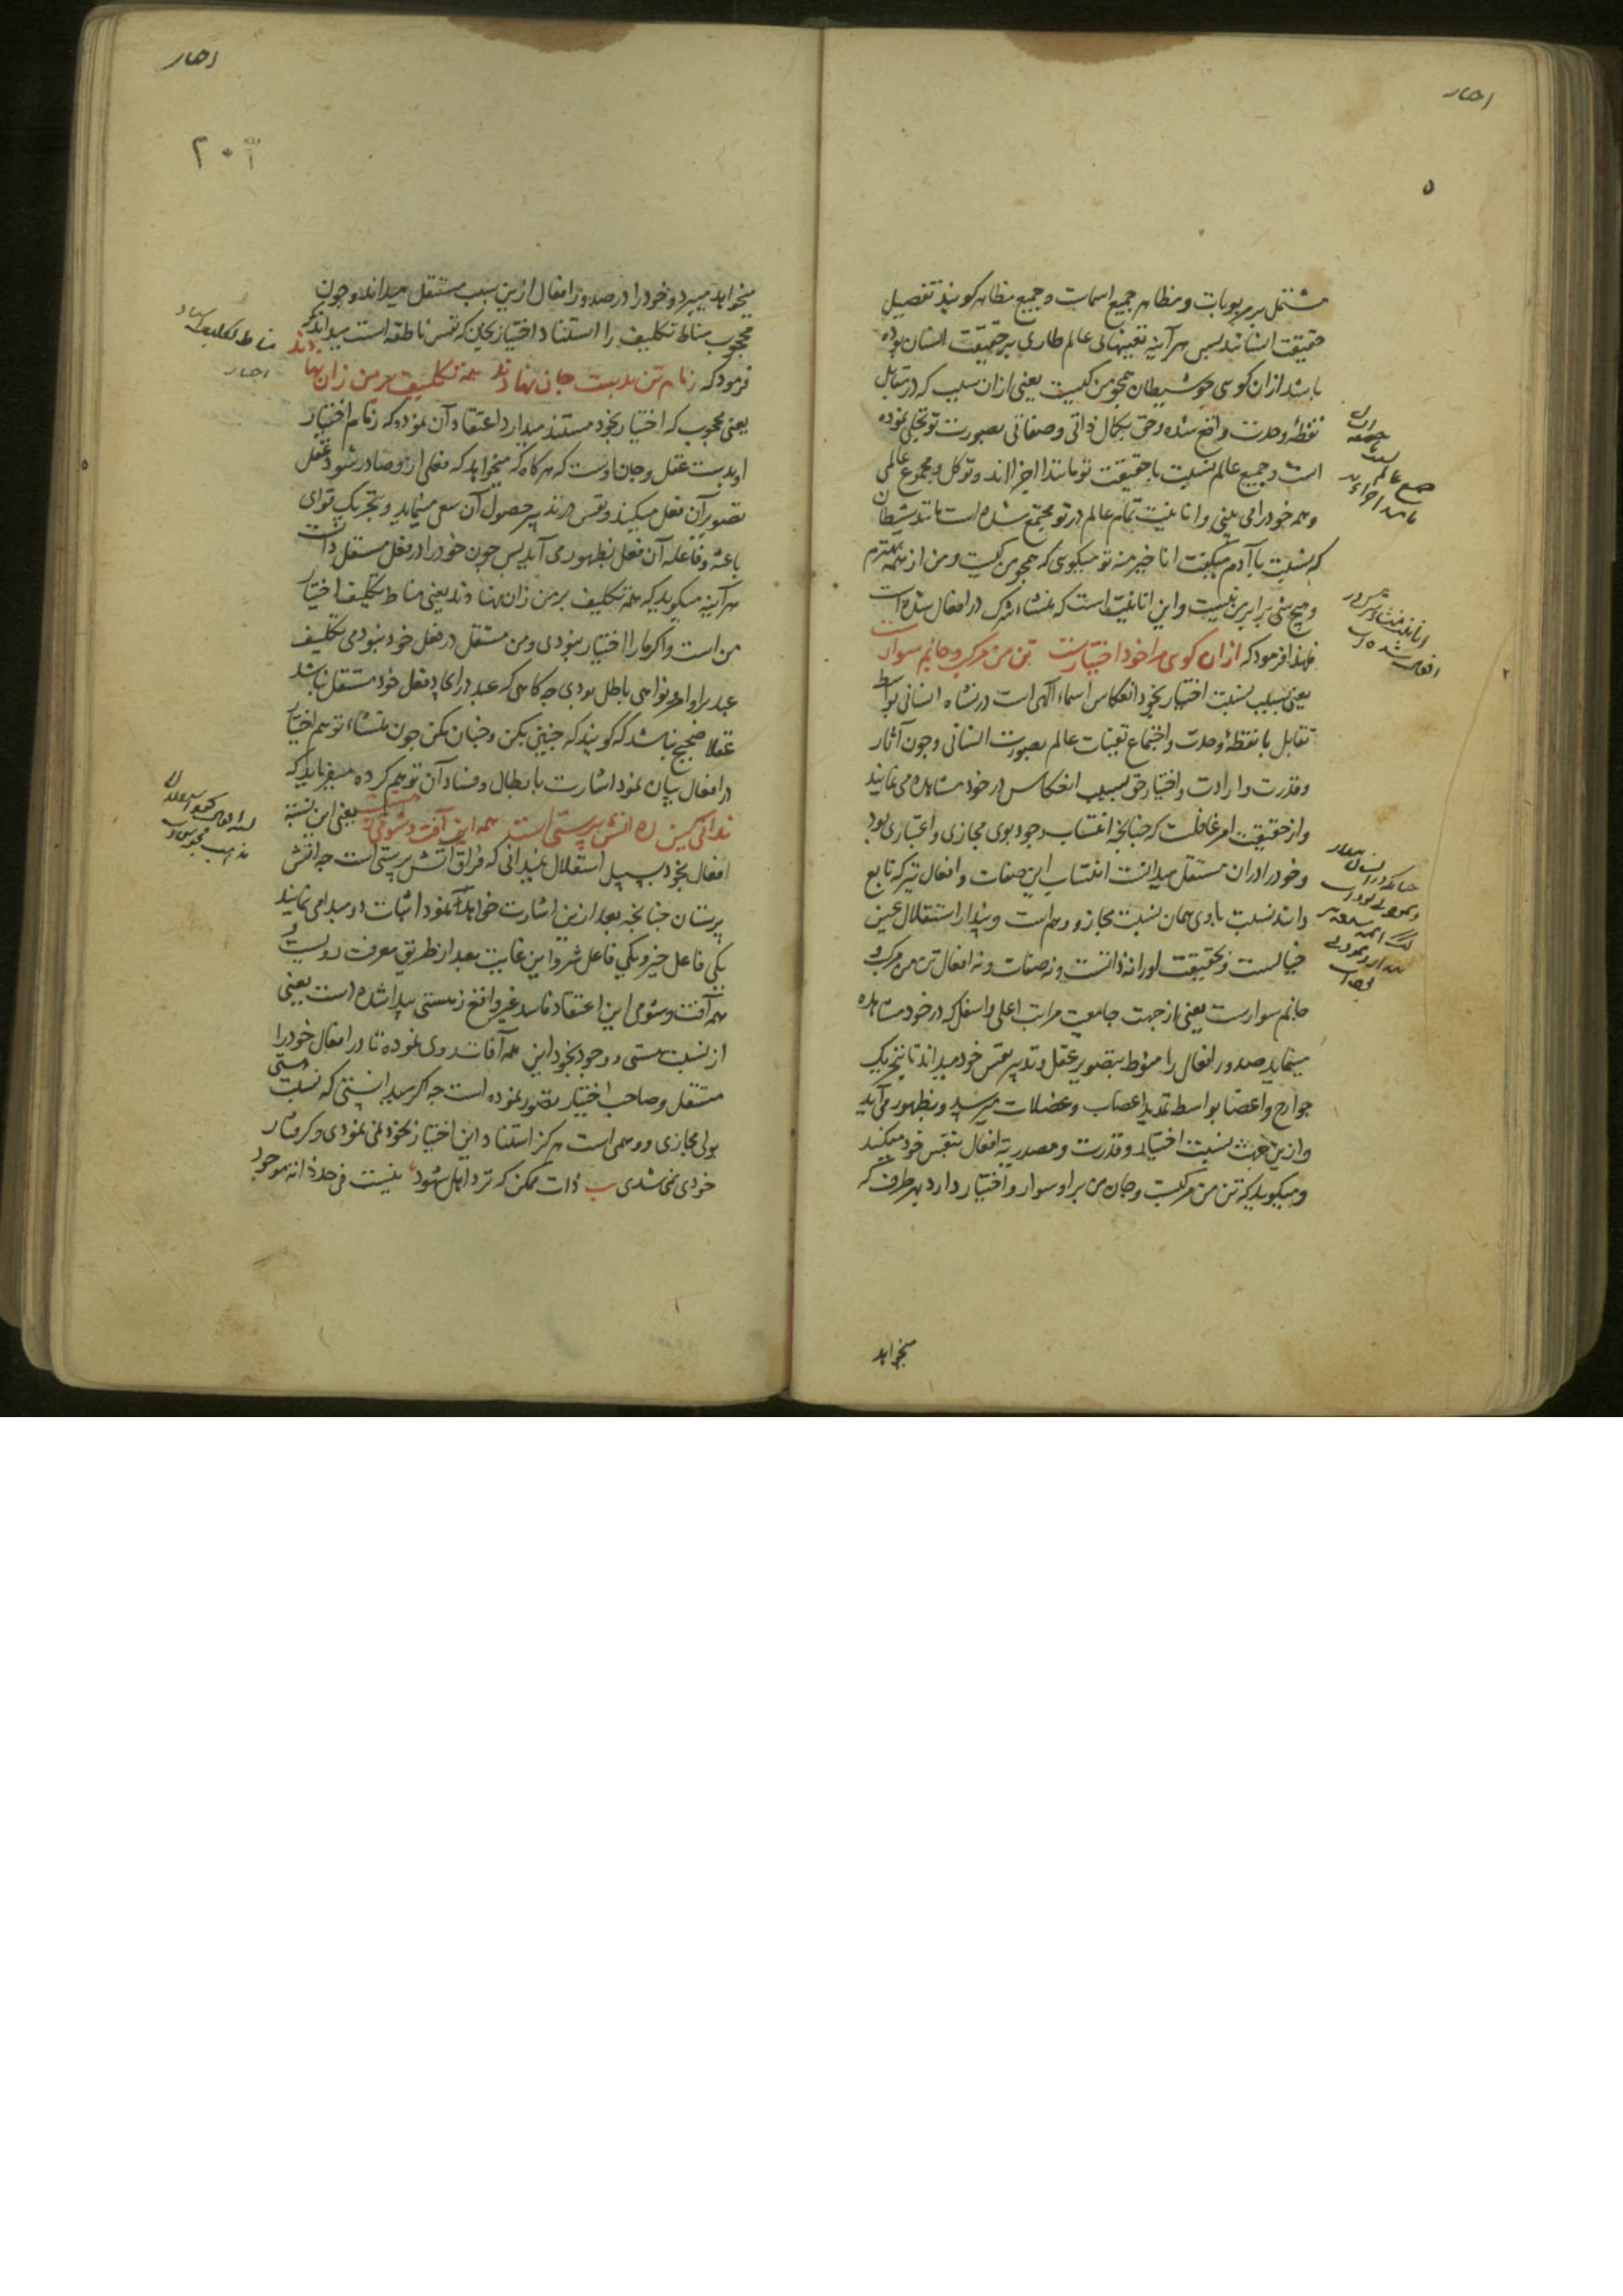 احصار
۵
مشتمل بر مربوبات و مظاهر جمیع اسمات و جمیع مظاهر کونیه تفصیل
حقیقت انسانند پس هر آینه تعینهای عالم طاری بر حقیقت انسان بوده
باشد ازان کوی چو شیطان همچو من کیست یعنی ازان سبب که در تقابل
نقطۀ وحدت واقع شده و حق بکمال ذاتی و صفاتی بصورت تو تجلی نموده
است و جمیع عالم نسبت با حقیقت تو مانند اجزااند و تو کل و مجموع عالمی
و همه خود را می بینی و انانیت تمام عالم در تو مجتمع شده است مانند شیطان
که نسبت با آدم میکفت انا خیر منه تو میکویی که همچو من کیست و من از همه بهترم
و هیچ شی برابر من نیست و این انانیت است که منشاء شرک در افعال شده است
لهذا فرمود که ازان کوی مرا خود اختیارست تن من مرکب و جانم سوارست
یعنی بسبب نسبت اختیار بخود انعکاس اسماء الهی است در نشاه انسانی بواسطه
تقابل با نقطۀ وحدت و اجتماع تعینات عالم بصورت انسانی و چون آثار
و قدرت و ارادت و اختیار حق بسبب انعکاس در خود مشاهده می نماید
و از حقیقت امر غافلست که چنانچه انتساب وجود بوی مجازی و اعتباری بود
و خود را دران مستقل میدانست انتساب این صفات و افعال نیز که تابع
ذاتند نسبت با وی همان نسبت مجاز و وهم است و پندار استقلال عین
خیالست و بحقیقت او را نه ذاتست و نه صفات و نه افعال تن من مرکب و
جانم سوارست یعنی از جهت جامعیت مراتب اعلی و اسفل که در خود مشاهده
مینماید صدور افعال را منوط بتصویر عقل و تدبیر نفس خود میداند تا بتحریک
جوارح و اعضا بواسطه تمدید اعصاب و عضلات میرسد و بظهور می آید
و ازین جهت نسبت اختیار و قدرت و مصدریة افعال بنفس خود میکند
و میکوید که تن من مرکبست و جان من بر او سوار و اختیار دارد بهر طرف که
میخواهد
جمیع عالم
انانیت منشاء شرک در
افعال شده است
احصار
میخواهد میبرد و خود را در صدور افعال ازین سبب مستقل میداند و چون
محجوب مناط تکلیف را استناد اختیار بجان که نفس ناطقه است میداند که
فرمود که زمام تن بدست جان نهادند همه تکلیف بر من زان نهادند
یعنی محجوب که اختیار بخود مستند میدارد اعتقاد آن نموده که زمام اختیار
او بدست عقل و جان اوست که هرکاه که میخواهد که فعلی از و صادر شود عقل
تصویر آن فعل میکند و نفس در تدبیر حصول آن سعی مینماید و بتحریک قوای
باعثه و فاعله آن فعل بظهور می آید پس چون خود را در فعل مستقل دانست
هر آینه میکوید که همه تکلیف بر من زان نهادند یعنی مناط تکلیف اختیار
من است و اکر ما را اختیار نبودی و من مستقل در فعل خود نبودمی تکلیف
عبد بر اوامر و نواهی باطل بودی چه کاهی که عبد در ایجاد فعل خود مستقل نباشد
عقلا صحیح نباشد که کویند که چنین بکن و چنان مکن چون منشاء توهم اختیار
در افعال بیان نمود اشارت بابطال و فساد آن توهم کرده میفرماید که
ندانی کین ره آتش پرستی است همه این آفت و شومی ز هستیست یعنی این نسبة
افعال بخود بسبیل استقلال نمیدانی که طریق اتش پرستی است چه اتش
پرستان چنانچه بعد ازین اشارت خواهد نمود اثبات دو مبدا می نمایند
یکی فاعل خیر و یکی فاعل شر و این غایت بعد از طریق معرفت دویست و
همه آفت و شومی این اعتقاد فاسد غیر واقع ز هستی پیدا شده است یعنی
از نسبت هستی و وجود بخود این همه آفات روی نموده تا در افعال خود را
مستقل و صاحب اختیار تصور نموده است چه اکر میدانستی که نسبت هستی
بولی مجازی و وهمی است هرکز استناد این اختیار بخود نمی نمودی و کرفتار
خودی نمی شدی ب ذات ممکن که نزد اهل شهود نیست فی حد ذاته موجود
مناط تکلیف
احصار
مذهب مجوس است